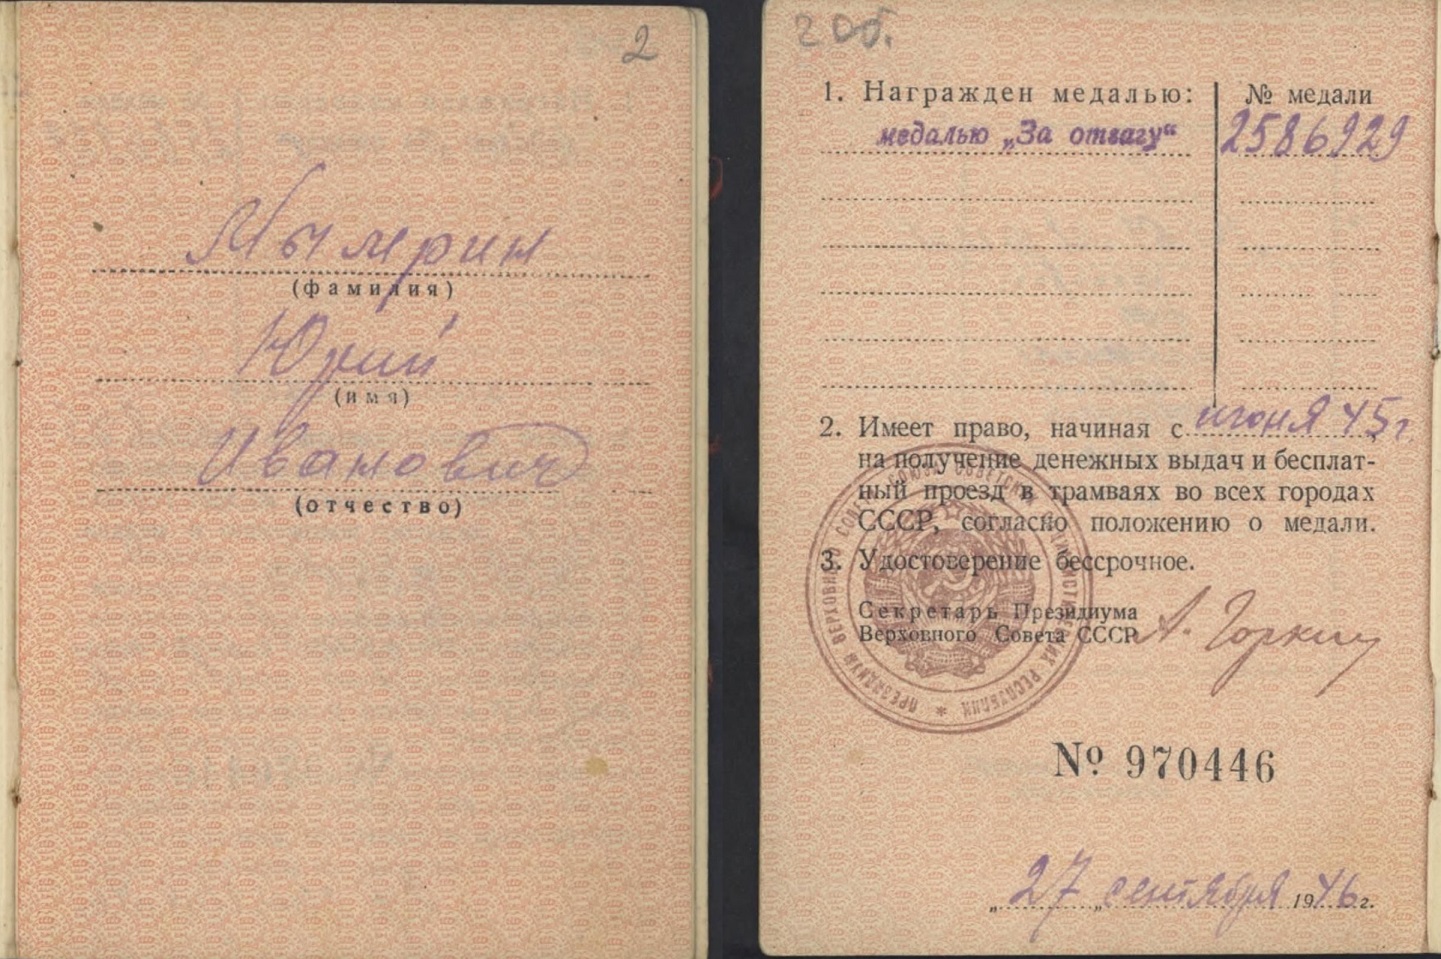 2
Мымрин
(фамилия)
Юрий
(имя)
Иванович
(отчество)
2 об.
1. Награжден медалью: № медали
медалью „За отвагу“ 2586929
2. Имеет право, начиная с июня 45г,
на получение денежных выдач и бесплат-
ный проезд в трамваях во всех городах
СССР, согласно положению о медали.
3. Удостоверение бессрочное.
Секретарь Президиума
Верховного Совета СССР А. Горкин
ПРЕЗИДИУМ ВЕРХОВНОГО СОВЕТА СОЮЗА СОВЕТСКИХ СОЦИАЛИСТИЧЕСКИХ РЕСПУБЛИК *
№ 970446
„27„ сентября 1946г.